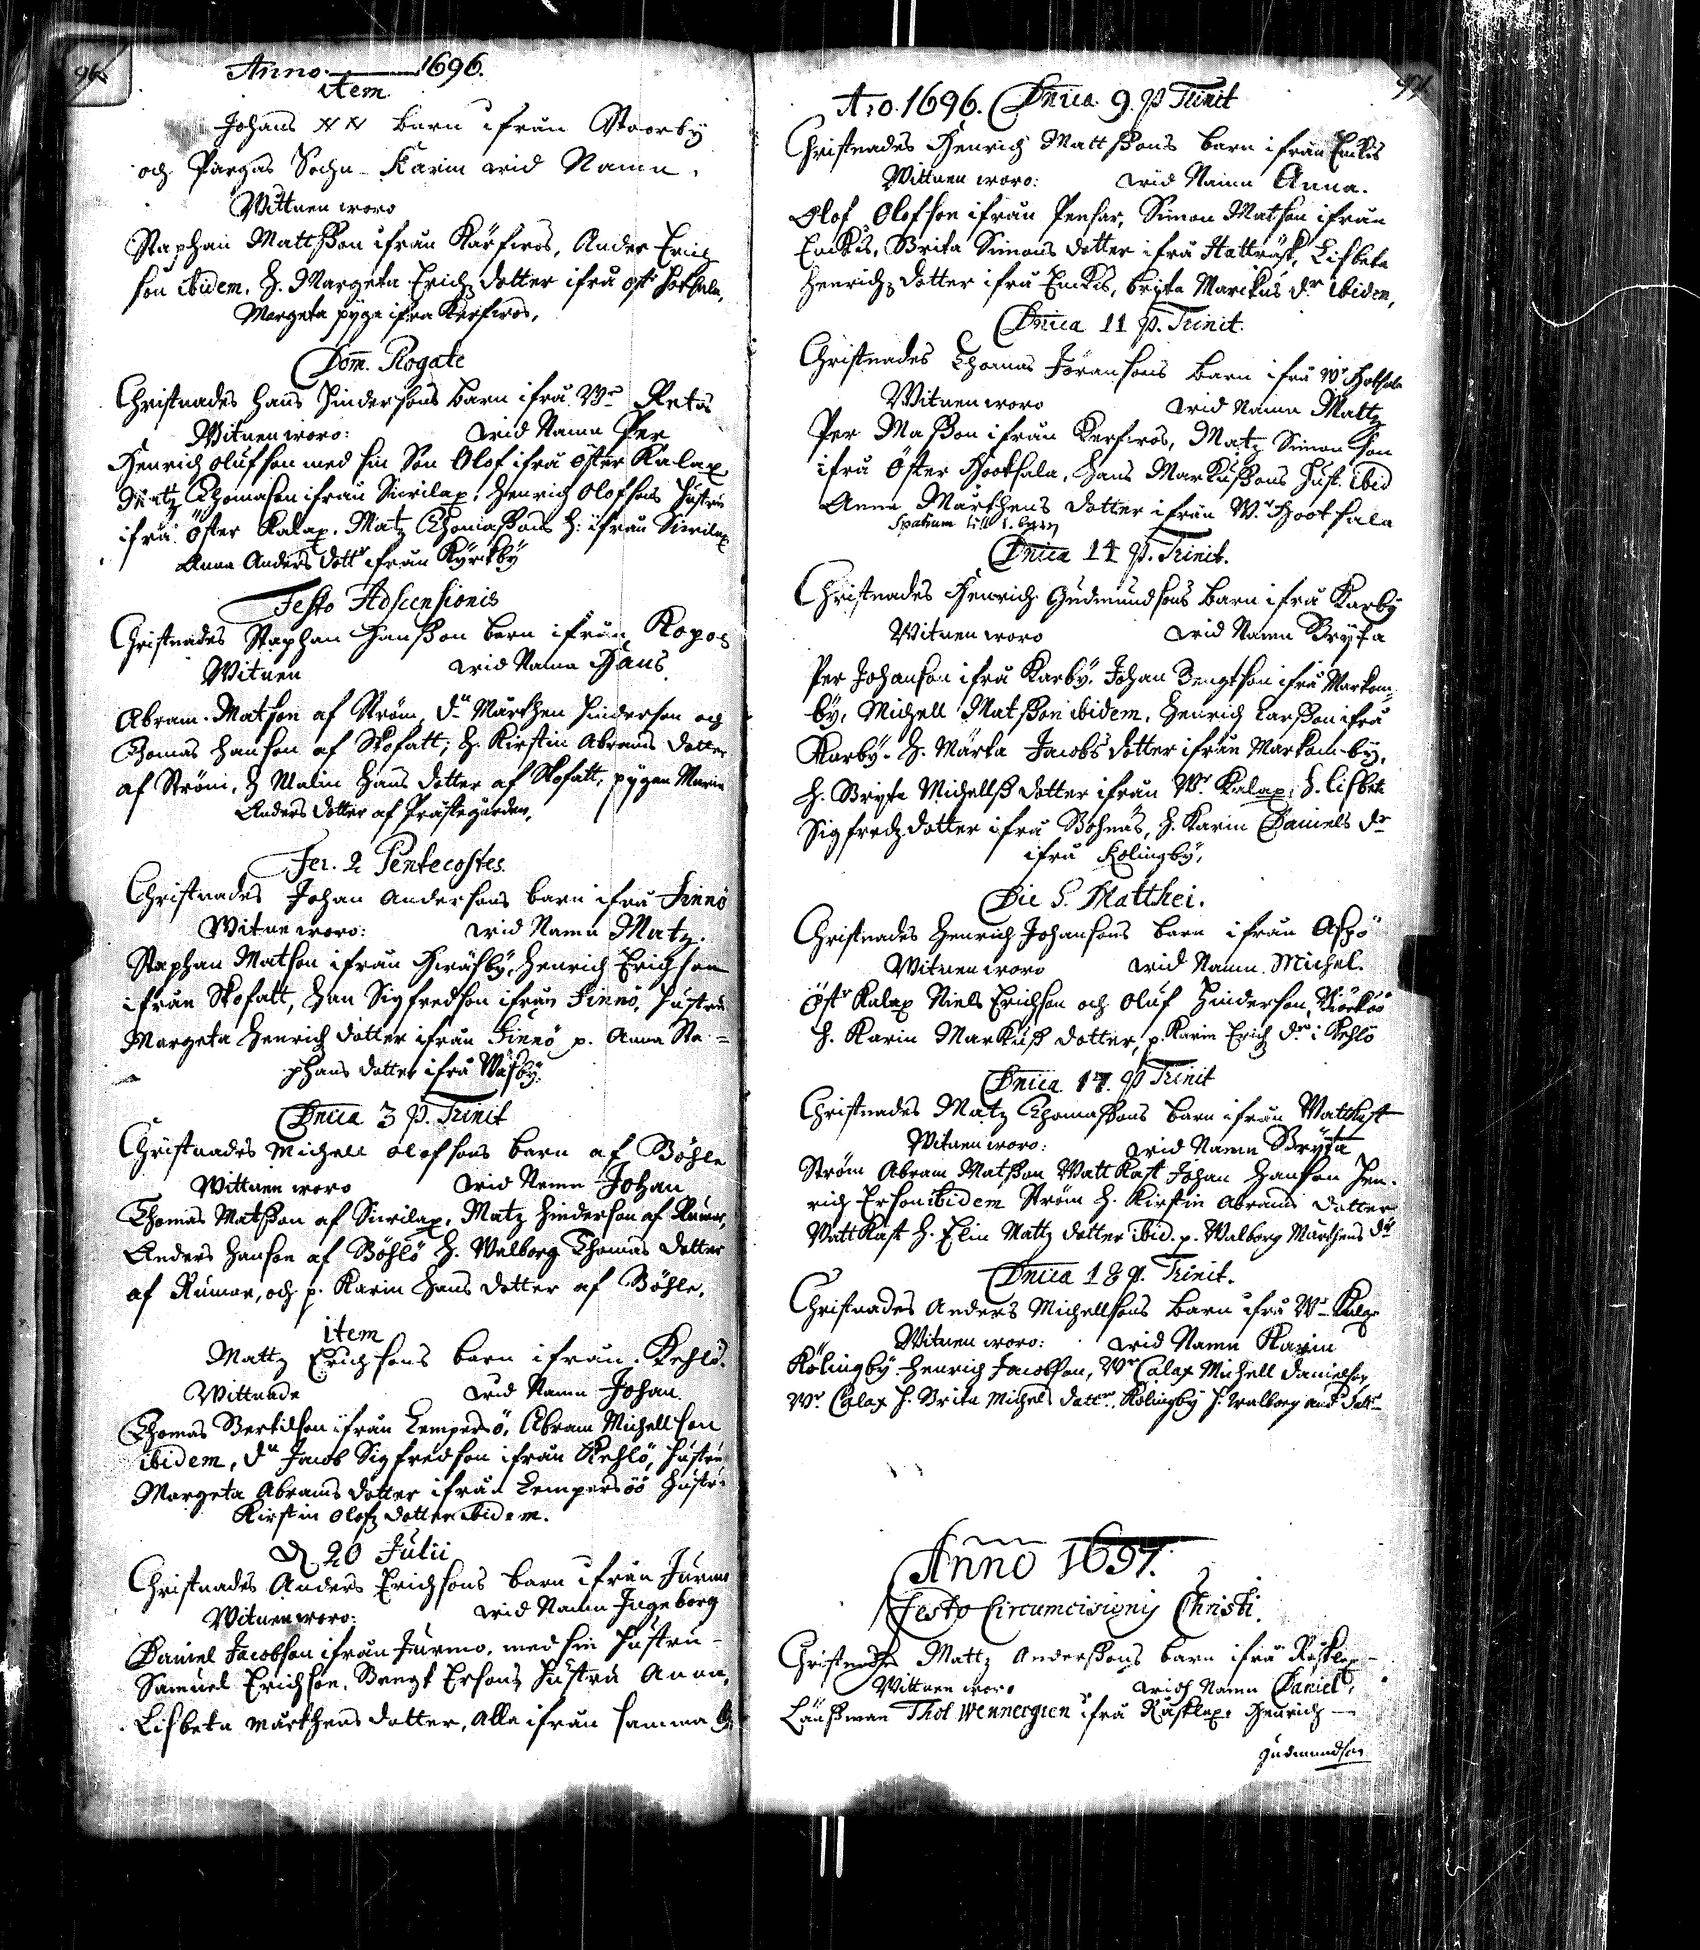 96.
Anno 1696.
item
Johans NN barn ifrån Storby
och Pargas Sochn Karin wid Namn.
Wittnen woro
Staphan Mattßon ifrån Kärfwos, Anders Erich
son ibidem. H. Margeta Erichz dotter ifrå öst: Hoksala,
Margeta pyga ifra Kerfwos.
Dom. Rogate
Christnades Hans Hindersons barn ifrå Wr Retais
Witnen woro: wid Namn Per
Henrich Olufson med sin Son Olof ifrå öster Kalax
Matz Thomason ifrån Siwilax, Henrich Olofsons Hustru
ifrå öster Kalax. Matz Thomaßons H: ifrån Siwilax
Anna Anders dottr ifrån Kyrkby
Festo Adscensionis
Christnades Staphan Hanßon barn ifrån Kopos
Witnen wid Namn Hans.
Abram Matson af Ström, dn Märthen Hinderson och
Thomas Hanson af Skofatt, H. Kirstin Abrams dotter
af Ström, H Malin Hans dotter af Skofatt, pygan Maria
Anders dotter af Prästegården.
Fer. 2 Pentecostes.
Christnades Johan Andersons barn ifrå Finnö
Witne woro: wid Namn Matz.
Staphan Matson ifrån Hwäsby, Henrich Erichson
ifrån Skofatt, Han Sigfredson ifrån Finnö, Hustru
Margeta Henrich dotter ifrån Finnö p. Anna Sta=
phans dotter ifrå Wäsby.
Dnica 3 P. Trinit
Christnades Michell Olofsons barn af Böhle
Wittnen woro wid Namn Johan
Thomas Matßon af Siwilax, Matz Hinderson af Rumar,
Anders Hanson af Böhlö H. Walborg Thomas dotter
af Rumar, och p. Karin Hans dotter af Böhle.
item
Mattz Erichsons barn ifrån Kehlö.
Wittnade wid Namn Johan
Thomas Bertilson ifrån Lempersö, Abram Michellson
ibidem, dn Jacob Sigfredson ifrån Kehlö, Hustru
Margeta Abrams dotter ifrån Lempersöö Hustru
Kirstin Olofz dotter ibidem.
D. 20 Julii
Christnades Anders Erichsons barn ifrån Jurmo
Witnen woro: wid Namn Ingeborg
Daniel Jacobson ifrån Jurmo, med sin Hustru
Samuel Erichson, Bengt Ersons Hustru Anna,
Lisbeta Märthens dotter, alla ifrån samma
97
Ao. 1696. Dnica 9. P Trinit
Christnades Henrich Mattßons barn ifrån Enkis
Wittnen woro: wid Namn Anna.
Olof Olofson ifrån Pensar, Simon Matson ifrån
Enkis, Brita Simons dotter ifrå Hatträsk, Lisbeta
Henrichz dotter ifrå Enkis, bryta Markus dr ibidem,
Dnica 11 P. Trinit.
Christnades Thomas Jöransons barn ifrå Wr Hoksala
Witnen woro wid Namn Mattz
Per Maßon ifrån Kerfwos, Matz Simon Son
ifrå Öster Hooksala, Hans Markußons Hust. ibid
Anna Märthens dotter ifrån Wr Hooksala
Spatium till 1. barn
Dnica 14 P. Trinit.
Christnades Henrich Gudmundsons barn ifrå Karby
Witnen woro wid Namn Bryta
Per Johanson ifrå Karby. Johan Bengtson ifrå Markom-
by, Michell Matßon ibidem, Henrich Larßon ifrå
Karby. H. Märta Jacobs dotter ifrån Markom-by,
H. Bryta Michellß dotter ifrån Wr Kalax, H. Lisbeta
Sigfredz dotter ifrå Böhnäs, H. Karin Daniels dr
ifrå Kolingby,
Die S. Matthei.
Christnades Henrich Johansons barn ifrån Aspö
Witnen woro wid Namn Michel.
Östr Kalax Niels Erichson och Oluf Hinderson, Biörköö
H. Karin Markuß dotter, p. Karin Erichz dr i Kehlö
Dnica 17. P Trinit
Christnades Matz Thomaßons barn ifrån Wattkast
Witnen woro: wid Namn Bryta
Ström Abram Matßon Wattkast Johan Hanson Hen-
rich Erson ibidem Ström H. Kirstin Abrams dotter
Wattkast H. Elin Mattz dotter ibid. p. Walborg Märthens dr
Dnica 18 P. Trinit.
Christnades Anders Michellsons barn ifrå Wr Kalax
Witnen woro: wid Namn Karin
Kolingby Henrich Jacobson, Wr Calax Michell Danielson,
Wr Calax H. Brita Michels dotter, Kolingby H. Walborg And dottr
Anno 1697.
Festo Circumcisionis Christi.
Christnades Mattz Anderßons barn ifrå Räsklax
Wittnen woro wid Namn Daniel,
Länßman Thol Wennergren ifrå Räsklax, Henrich
Gudmundson